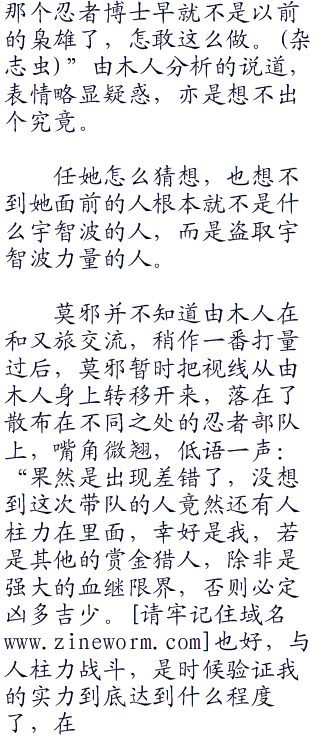 那个忍者博士早就不是以前
的枭雄了，怎敢这么做。(杂
志虫)”由木人分析的说道，
表情略显疑惑，亦是想不出
个究竟。
任她怎么猜想，也想不
到她面前的人根本就不是什
么宇智波的人，而是盗取宇
智波力量的人。
莫邪并不知道由木人在
和又旅交流，稍作一番打量
过后，莫邪暂时把视线从由
木人身上转移开来，落在了
散布在不同之处的忍者部队
上，嘴角微翘，低语一声：
“果然是出现差错了，没想
到这次带队的人竟然还有人
柱力在里面，幸好是我，若
是其他的赏金猎人，除非是
强大的血继限界，否则必定
凶多吉少。[请牢记住域名
www.zineworm.com]也好，与
人柱力战斗，是时候验证我
的实力到底达到什么程度
了，在